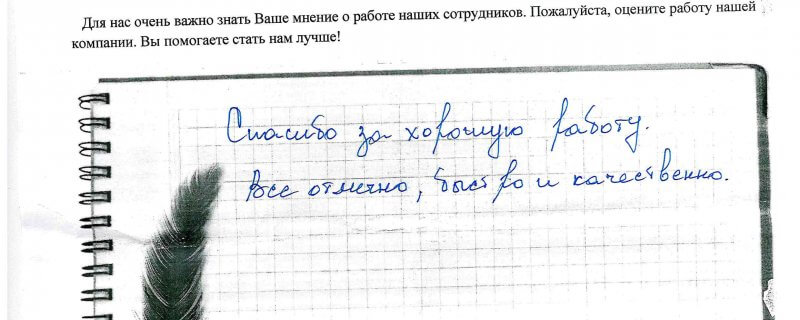 Для нас очень важно знать Ваше мнение о работе наших сотрудников. Пожалуйста, оцените работу нашей
компании. Вы помогаете стать нам лучше!
Спасибо за хорошую работу.
Все отлично, быстро и качественно.